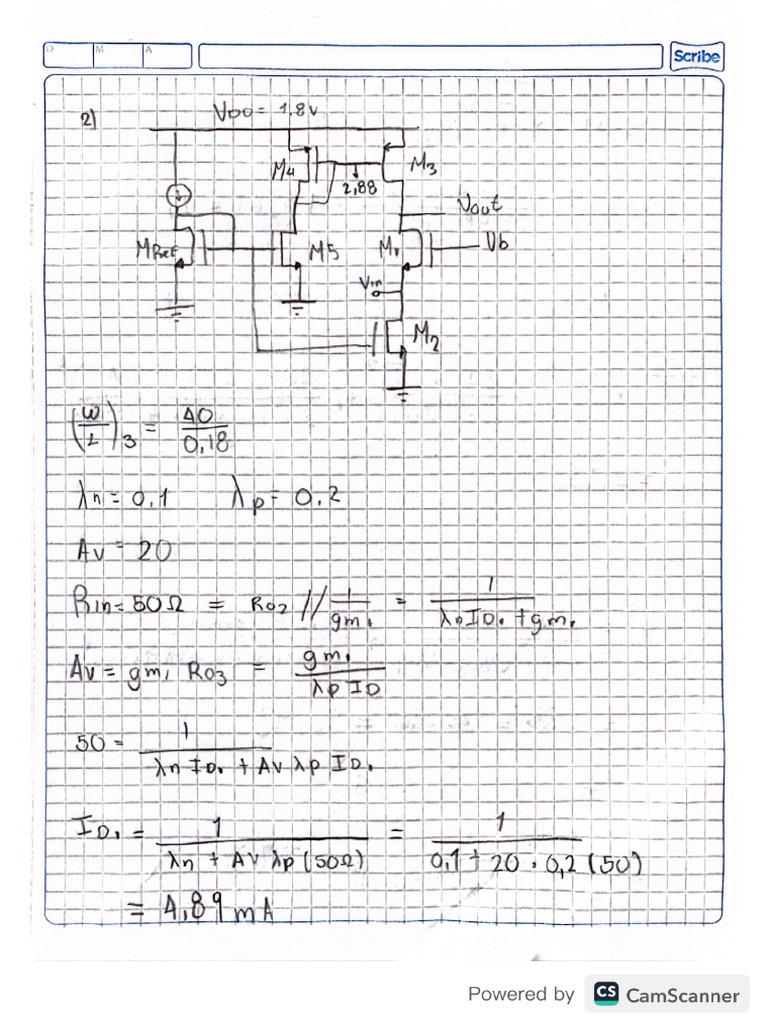 D M A
Scribe
2)
VDD = 1.8v
M4
M3
2,88
Vout
MRef
M5
M1
Vb
Vin
M2
(W/L)3 = 40/0,18
λn = 0,1 λp = 0,2
Av = 20
Rin = 50Ω = Ro2 // 1/gm1 = 1/(λnID1 + gm1)
Av = gm1 Ro3 = gm1/(λp ID)
50 = 1/(λn ID1 + Av λp ID1)
ID1 = 1/(λn + Av λp (50Ω)) = 1/(0,1 + 20 · 0,2 (50))
= 4,89 mA
Powered by CS CamScanner